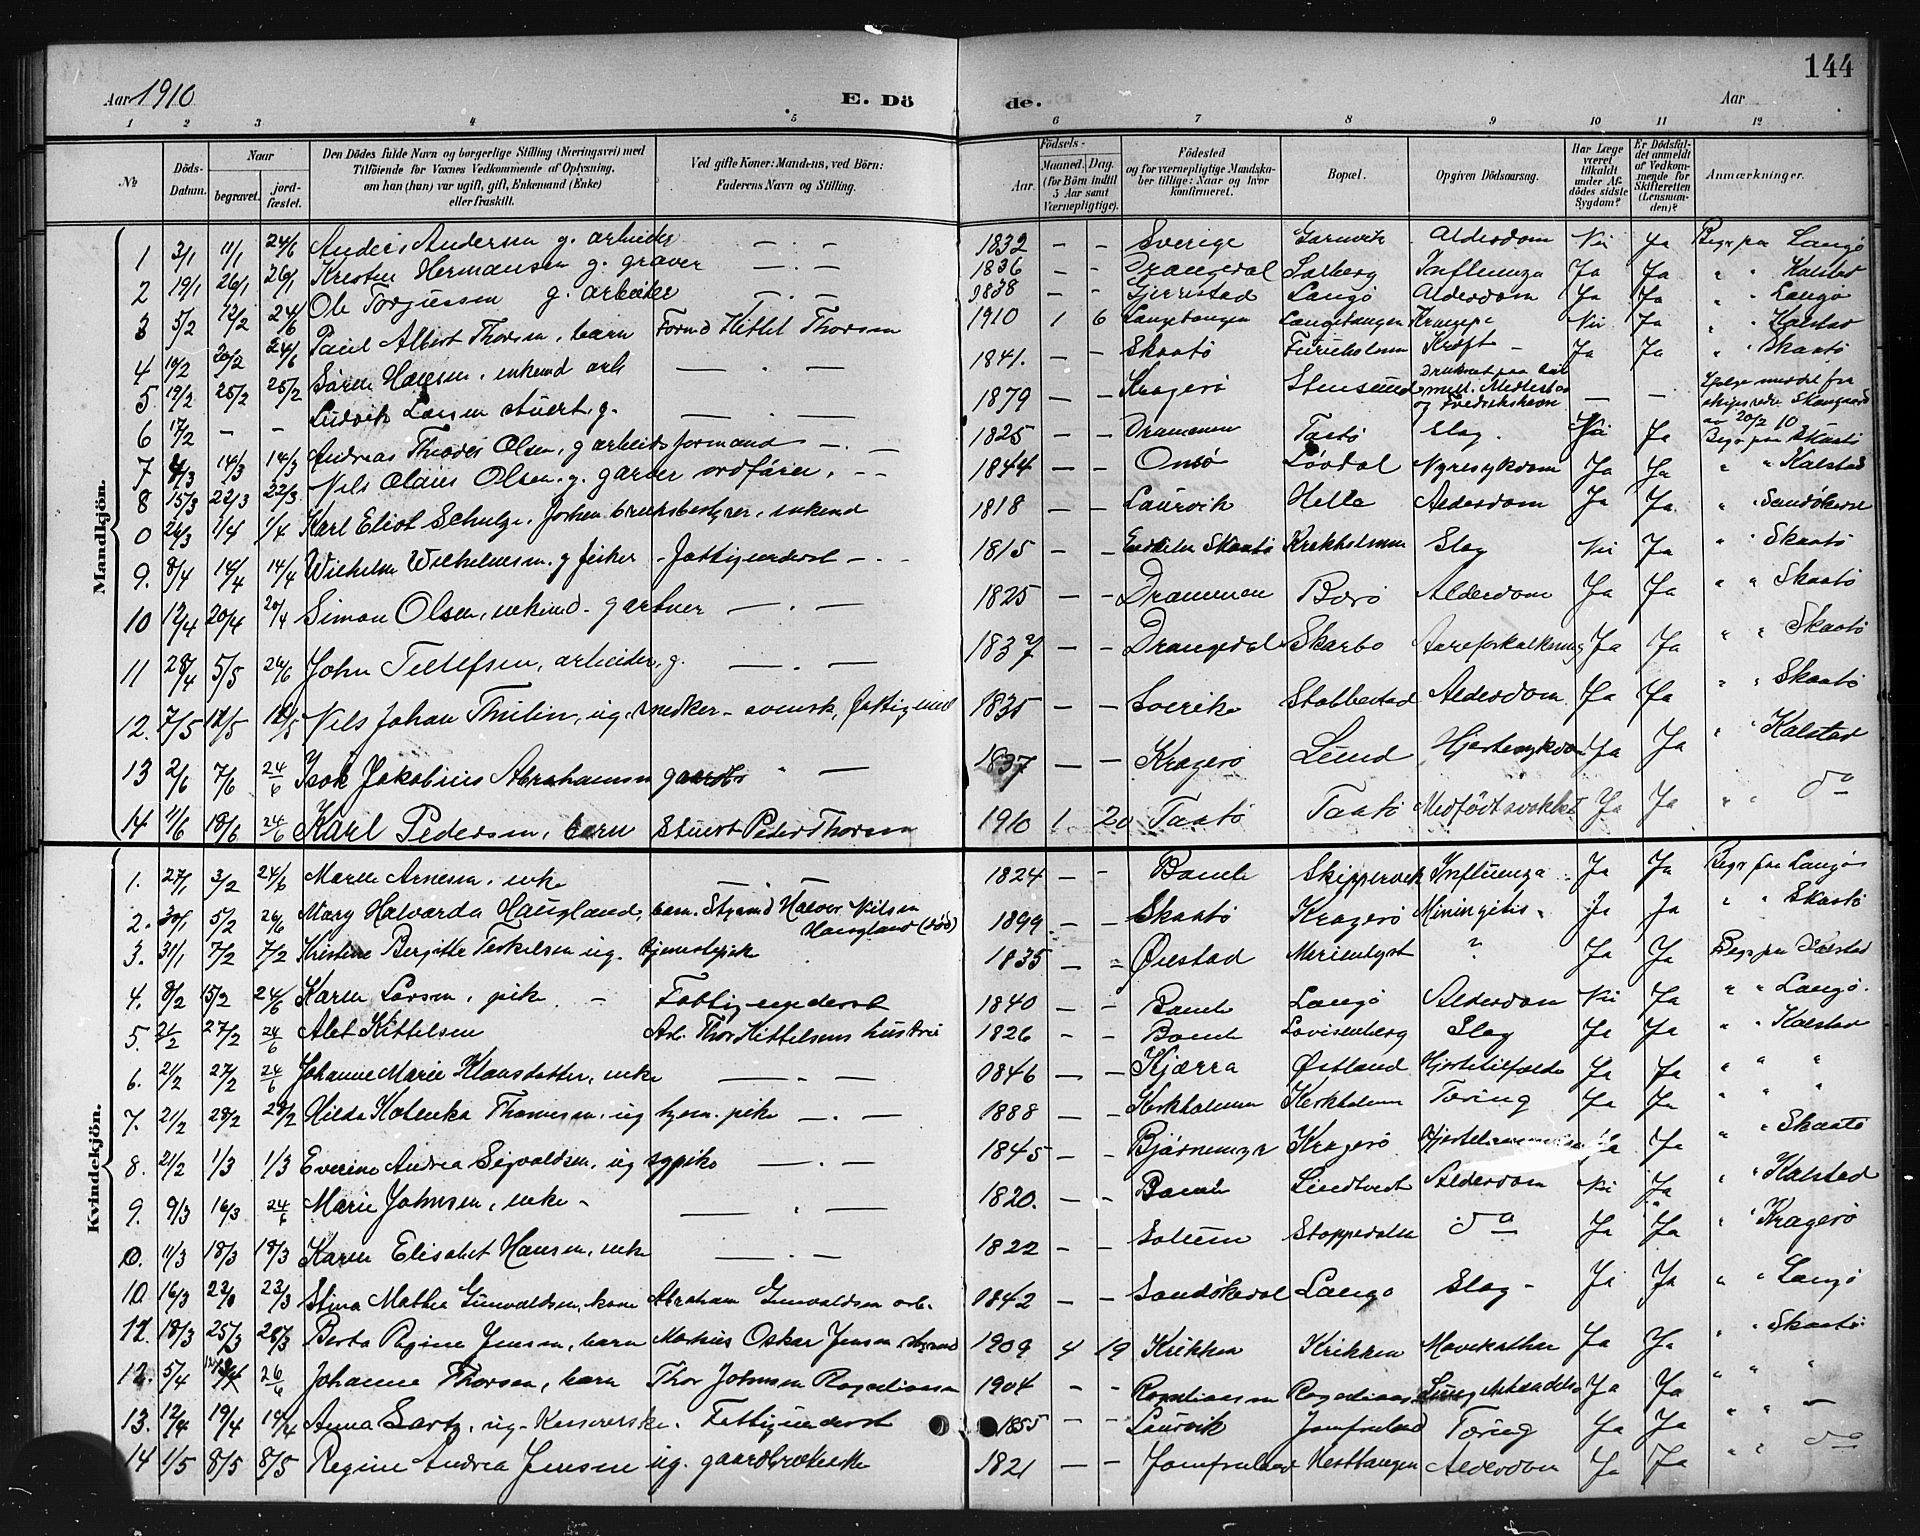 144
Aar 1910
E. Dö
de.
Aar
1 2 3 4 5 6 7 8 9 10 11 12
No
Döds-Datum.
Naar
begravet.
jord-fæstet.
Den Dödes fulde Navn og borgerlige Stilling (Næringsvei) med
Tilföiende for Voxnes Vedkommende af Oplysning,
om han (hun) var ugift, gift, Enkemand (Enke)
eller fraskilt.
Ved gifte Koner: Mandens, ved Börn:
Faderens Navn og Stilling.
Födsels-
Aar. Maaned. Dag.
(for Börn indtil 5 Aar samt Værnepligtige).
Födested
og for værnepligtige Mandsku-
ber tillige: Naar og hvor
konfirmeret.
Bopæl.
Opgiven Dödsaarsag.
Har Læge været tilkaldt under Af-dödes sidste Sygdom?
Er Dödsfal-det anmeldt af Vedkom-mende for Skifteretten (Lensman-den)?
Anmærkninger.
Mandkjön.
1 3/1 11/1 24/6 Anders Andersen g. arbeider — . — 1832 — — Sverige Alderdom Nei Ja Begr. paa Langö
2 19/1 26/1 26/1 Kresten Hermansen g. graver — . — 1836 — — Drangedal Influenza Ja Ja " " Kalstad
3 5/2 12/2 24/6 Ole Torjussen g. arbeider 1838 — — Gjerrestad Langö Alderdom Ja Ja " " Langö
4 10/2 20/2 24/6 Paul Albert Thorsen, barn Formd Kittel Thorsen 1910 1 6 Langetangen Langetangen Nei Ja " " Kalstad
5 19/2 25/2 25/2 Sören Hansen, enkemd arb — . — 1841. — — Skaatö Furuholmen Kræft — Ja Ja " " Skaatö
6 17/2 — — Ludvik Larsen stuert g. — . — 1879 — — Kragerö Stensund — —
7 14/3 14/3 Andreas Thodes Olsen, g arbeidsformand — . 1825 — — Drammen Taatö Slag. Nei Ja Begr. paa Skaatö
8 15/3 22/3 22/3 Nils Olaus Olsen g. garver ordförer. — — 1844 — — Onsö Lövdal Nyresykdom Ja Ja " " Kalstad
0 26/3 1/4 1/4 Karl Eliot Schulze, brugsbestyrer, enkemd 1818 — — Laurvik Helle Alderdom Ja Ja. " Sandökerse
9. 8/4 14/4 14/4 Wilhelm Wilhelmsen. g fisker - fattigunderst — . 1815 — — Skaatö Kirkholmen Slag Nei Ja " " Skaatö
10 12/4 20/4 20/4 Simon Olsen, enkemd - gartner — . — 1825 — — Drammen Borö Alderdom Ja Ja " " Skaatö
11 28/4 5/5 24/6 John Tellefsen, arbeider, g. — . — 1837 — — Drangedal Skarbo Aareforkalkning Ja Ja " " Skaatö
12. 7/5 12/5 12/5 Nils Johan Thulin, ug, snedker - svensk, 1835 — — Sverike Stabbestad Alderdom Ja Ja " " Skaatö
13 2/6 7/6 24/6 Isak Jakobius Abrahamsen — 1837 — — Kragerö Lund Hjertesykdom Ja Ja " " Kalstad
14 11/6 18/6 24/6 Karl Pedersen, barn Stuert Peder Thorsen 1910 1. 20 Taatö Taatö Medfödt svakhet Ja Ja " " do
Kvindekjön.
1. 27/1 3/2 24/6 Maren Arnesen, enke — . — 1824 — — Bamle Skippervik Influenza Ja Ja Begr paa Langö
2. 30/1 5/2 26/6 Mary Halvarda Haugland, barn. Styrmd Halvor Nilsen
Haugland (död) 1899 — — Skaatö Kragerö Miningitis - Ja Ja " " Skaatö
3. 31/1 7/2 7/2 Kristine Bergitte Terkelsen ug. tjenestepike 1835 — — Öiestad Merienlyst " Ja Ja Begr paa Kalstad
4. 8/2 15/2 24/6 Karen Larsen, pike — Fattigunderst 1840 — — Bamle Langö Alderdom Nei Ja " " Langö.
5. 21/2 27/2 24/6 Alet Kittelsen Arb. Thor Kittelsens hustru 1826 — — Bamle Lovisenberg Slag Ja Ja " " Kalstad
6. 21/2 27/2 24/6 Johanne Marie Klausdatter, enke — . — 1846 — — Kjærra Östland Hjertetilfælde Ja Ja " " "
7. 21/2 28/2 28/2 Hilda Thomesen, ug hjem. pike — . — 1888 — — Kirkholmen Kirkholmen Tæring Ja Ja " " "
8. 21/2 1/3 1/3 Everine Andrea Sigvaldsen, ug sypike — . — 1845 — — Kragerö Ja Ja " " Skaatö
9. 9/3 16/3 24/6 Marie Johnsen, enke - — . — 1820. — — Bamle Lindtvedt Alderdom Nei Ja " Kalstad
0. 11/3 18/3 18/3 Karen Elisabet Hansen, enke — . — 1822 — — Solum Stoppedalen do Ja Ja " Kragerö
10. 16/3 23/3 Stina Mathea Gunvaldsen, kone Abraham Gunvaldsen arb. 1842 — — Sandökedal Langö Slag - Ja Ja " " Langö
11. 18/3 25/3 28/3 Berta Regine Jensen, barn Matius Oskar Jensen styrmd 1909 4 19 Krikken Krikken Mavekathar Ja Ja " " Skaatö
12. 5/4 26/6 Johanne Thorsen, barn Thor Johnsen 1904 — — Ja Ja " " "
13. 12/4 19/4 19/4 Anna ug - Fattigunderst 1855 — — Laurvik Jomfruland Tæring Ja Ja " " —
14 1/5 8/5 8/5 Regine Andrea Jensen ug. 1821 — — Jomfruland Alderdom Ja Ja " " do